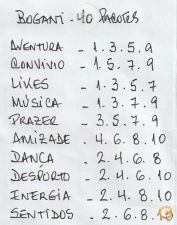 BOGANI - 40 PACOTES
AVENTURA - 1.3.5.9
CONVÍVIO - 1.5.7.9
LIKES - 1.3.5.7
MÚSICA - 1.3.7.9
PRAZER - 3.5.7.9
AMIZADE - 4.6.8.10
DANÇA - 2.4.6.8
DESPORTO - 2.4.6.10
INERGIA - 2.4.8.10
SENTIDOS - 2.6.8.10